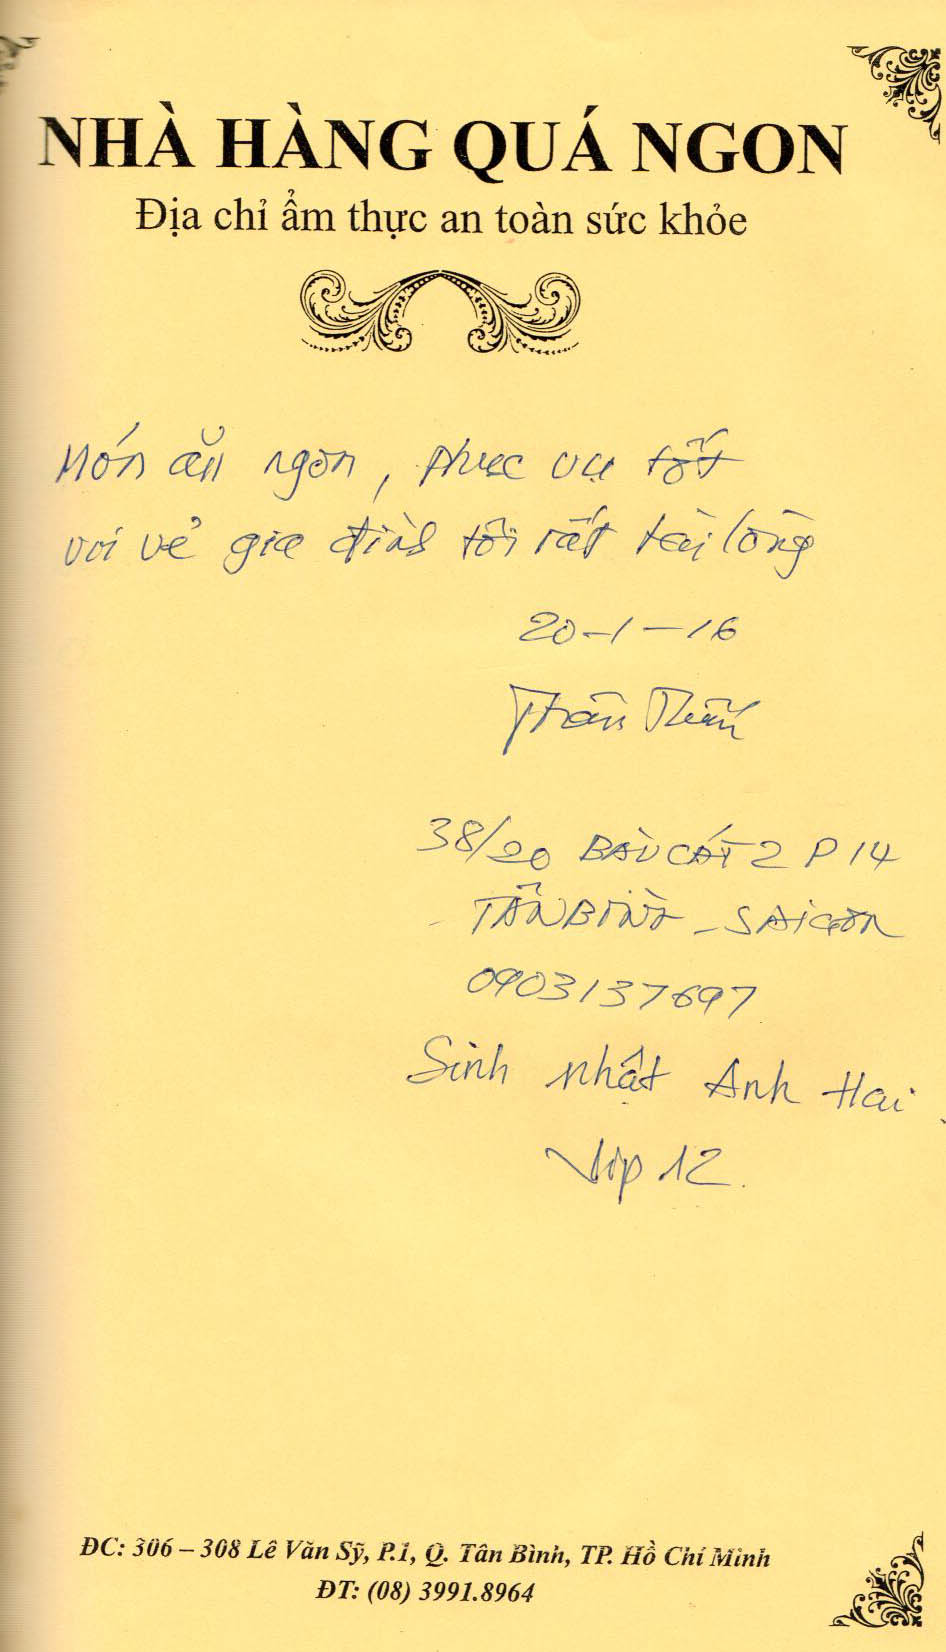 NHÀ HÀNG QUÁ NGON
Địa chỉ ẩm thực an toàn sức khỏe
Món ăn ngon, phục vụ tốt
vui vẻ gia đình tôi rất hài lòng
20-1-16
38/20 BÀU CÁT 2 P 14
TÂN BÌNH - SAIGON
0903137697
Sinh nhật Anh Hai.
Vip 12.
ĐC: 306 – 308 Lê Văn Sỹ, P.1, Q. Tân Bình, TP. Hồ Chí Minh
ĐT: (08) 3991.8964